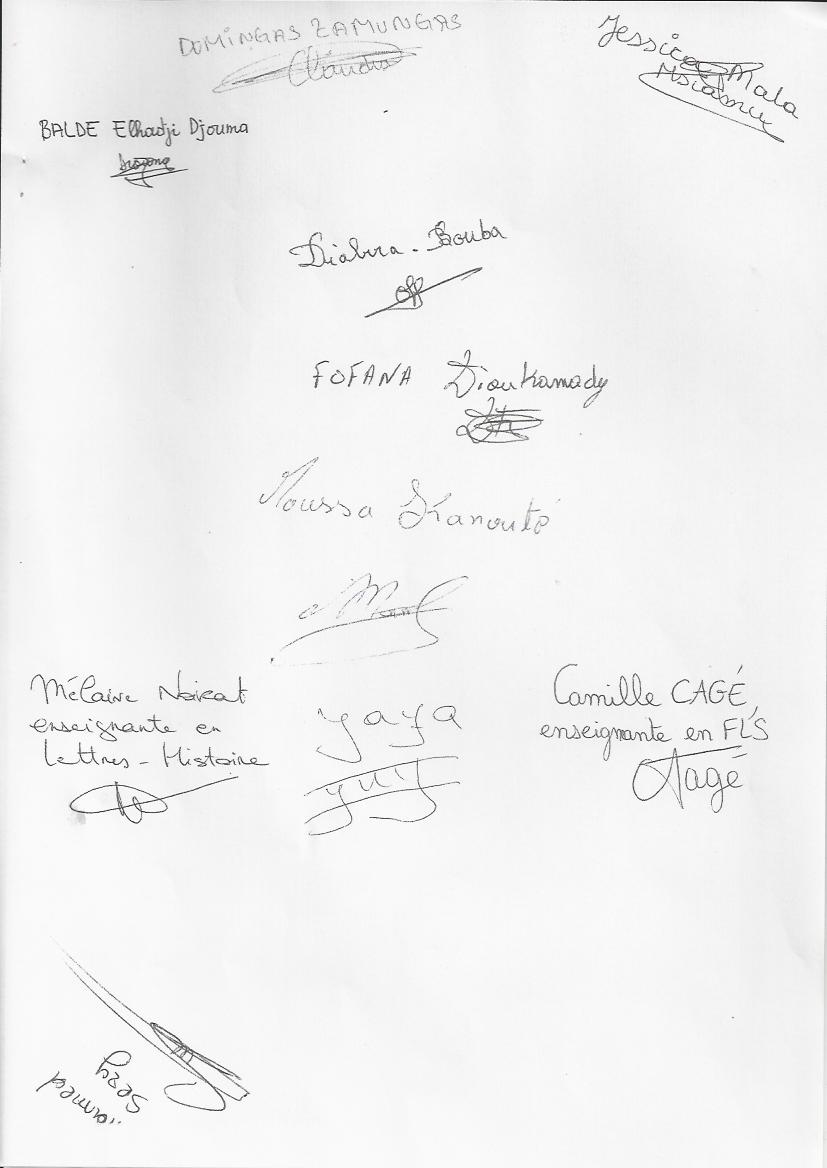 DOMINGAS ZAMUNGAS
Claudia
Jessica Mala
BALDE Elhadji Djouma
Diabira - Bouba
FOFANA Dioukamady
Moussa Kanouté
Mélaine Noicat
enseignante en
Lettres - Histoire
yaya
Camille CAGÉ,
enseignante en FLS
Cagé